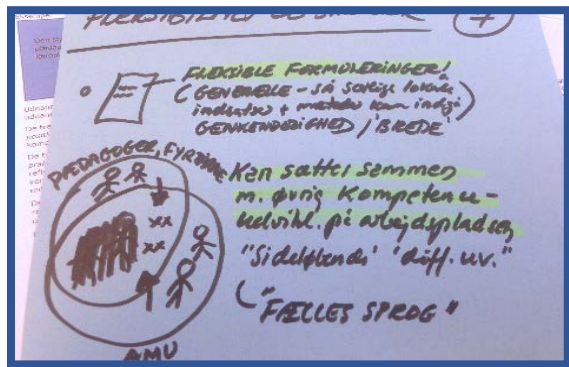 FLEKSIBLE FORMULERINGER!
(GENERELLE - så særlige lokale
indsatser + metoder kan indgå)
GENKENDELIGHED / 'BREDE'
PÆDAGOGER,
Kan sættes sammen
m. øvrig Kompetence-
udvikl. på arbejdspladsen
xx
xx
"Sideløbende' 'diff. uv."
"FÆLLES SPROG"
AMU